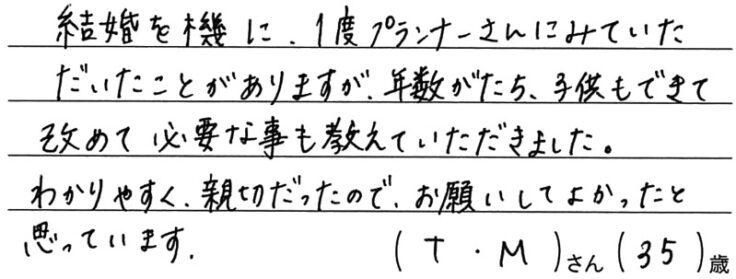 結婚を機に、1度プランナーさんにみていた
だいたことがありますが、年数がたち、子供もできて
改めて必要な事も教えていただきました。
わかりやすく、親切だったので、お願いしてよかったと
思っています。 (T・M)さん(35)歳